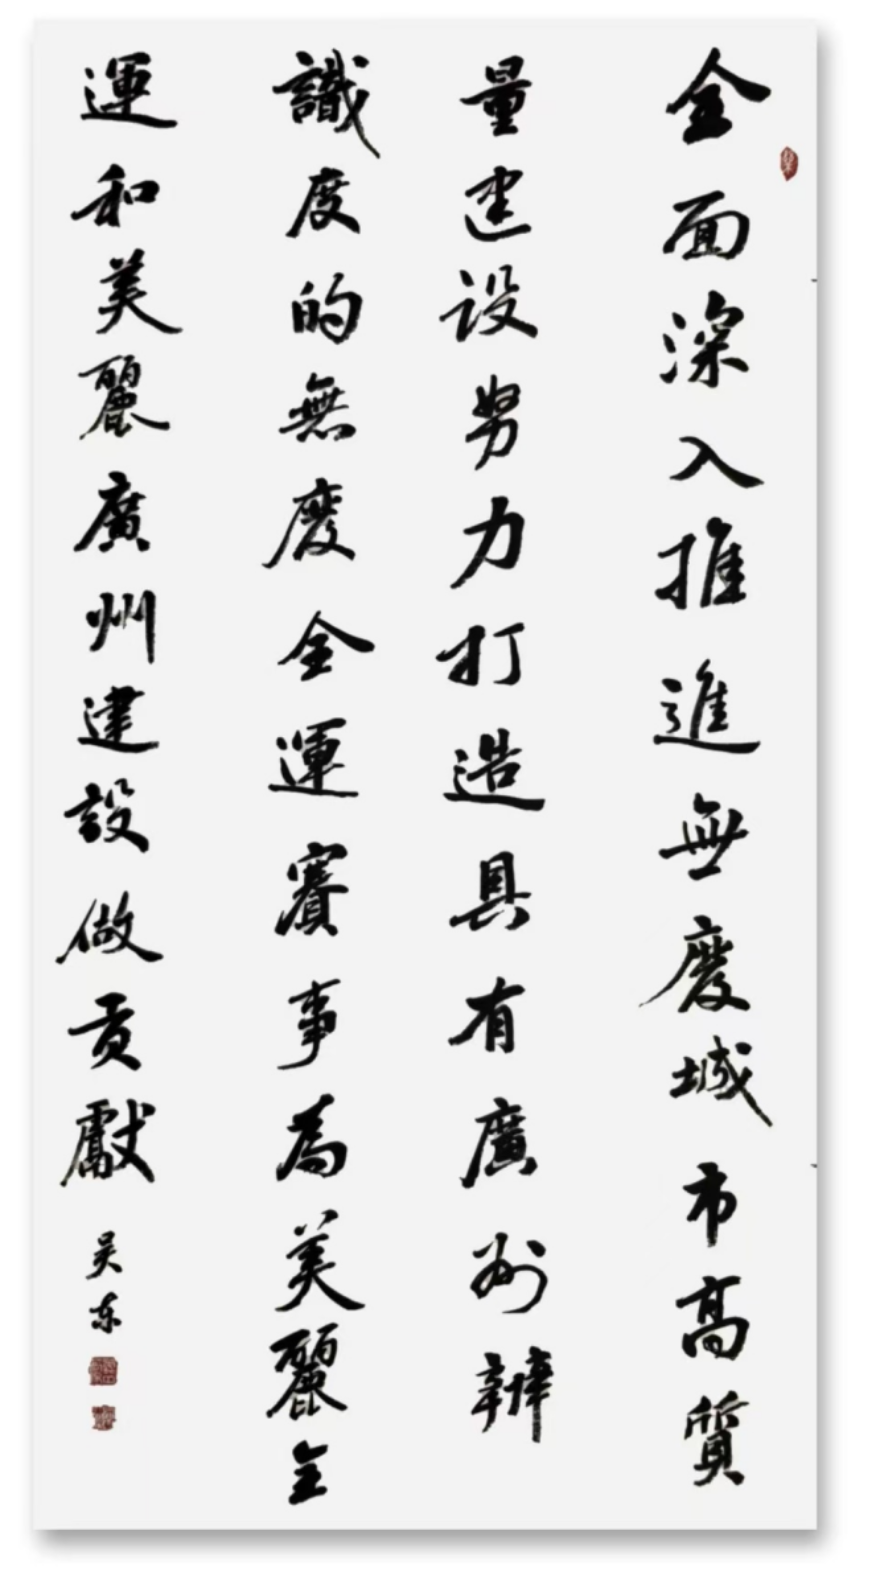 全面深入推進無廢城市高質
量建设努力打造具有廣州辨
識度的無廢全運賽事為美麗全
運和美麗廣州建設做贡獻
吴东